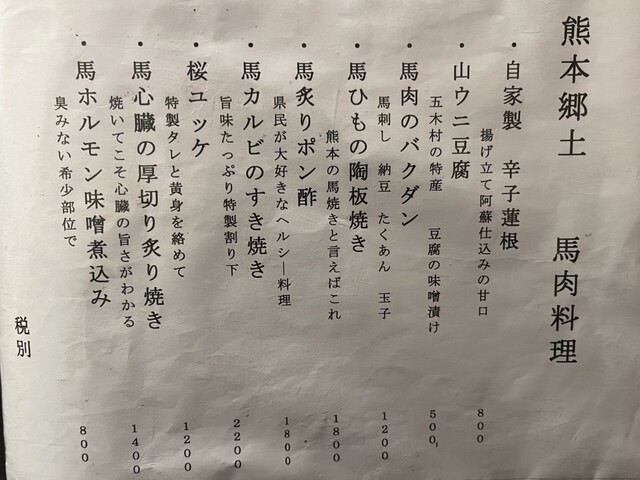 熊本郷土　馬肉料理
・自家製　辛子蓮根
揚げ立て阿蘇仕込みの甘口
800
・山ウニ豆腐
五木村の特産　豆腐の味噌漬け
500
・馬肉のバクダン
馬刺し　納豆　たくあん　玉子
1200
・馬ひもの陶板焼き
熊本の馬焼きと言えばこれ
1800
・馬炙りポン酢
県民が大好きなヘルシー料理
1800
・馬カルビのすき焼き
旨味たっぷり特製割り下
2200
・桜ユッケ
特製タレと黄身を絡めて
1200
・馬心臓の厚切り炙り焼き
焼いてこそ心臓の旨さがわかる
1400
・馬ホルモン味噌煮込み
臭みない希少部位で
800
税別